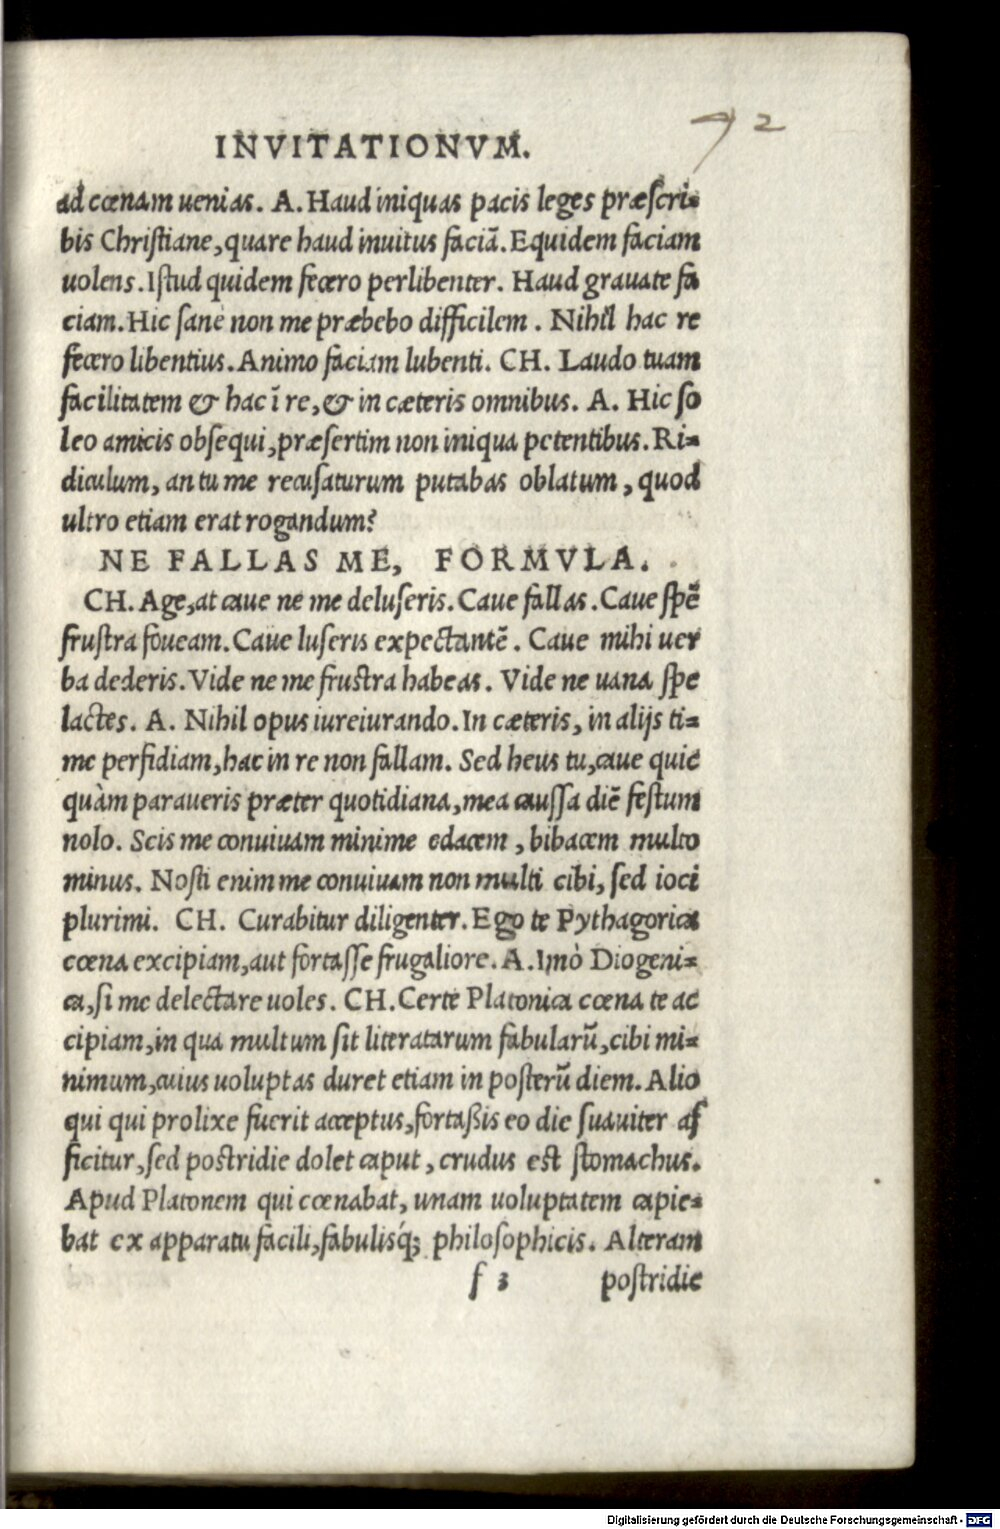 92
INVITATIONVM.
ad cœnam uenias. A. Haud iniquas pacis leges præscri=
bis Christiane, quare haud inuitus faciã. Equidem faciam
uolens. Istud quidem fecero perlibenter. Haud grauate fa
ciam. Hic sane non me præbebo difficilem. Nihil hac re
fecero libentius. Animo faciam lubenti. CH. Laudo tuam
facilitatem & hac ĩ re, & in cæteris omnibus. A. Hic so
leo amicis obsequi, præsertim non iniqua petentibus. Ri=
diculum, an tu me recusaturum putabas oblatum, quod
ultro etiam erat rogandum?
NE FALLAS ME, FORMVLA.
CH. Age, at caue ne me deluseris. Caue fallas. Caue spẽ
frustra foueam. Caue luseris expectantẽ. Caue mihi uer
ba dederis. Vide ne me frustra habeas. Vide ne uana spe
lactes. A. Nihil opus iureiurando. In cæteris, in alijs ti=
me perfidiam, hac in re non fallam. Sed heus tu, caue quic
quàm paraueris præter quotidiana, mea caussa diẽ festum
nolo. Scis me conuiuam minime edacem, bibacem multo
minus. Nosti enim me conuiuam non multi cibi, sed ioci
plurimi. CH. Curabitur diligenter. Ego te Pythagorica
cœna excipiam, aut fortasse frugaliore. A. Imò Diogeni=
ca, si me delectare uoles. CH. Certe Platonica cœna te ac
cipiam, in qua multum sit literatarum fabularũ, cibi mi=
nimum, cuius uoluptas duret etiam in posterũ diem. Alio
qui qui prolixe fuerit acceptus, fortaßis eo die suauiter af
ficitur, sed postridie dolet caput, crudus est stomachus.
Apud Platonem qui cœnabat, unam uoluptatem capie=
bat ex apparatu facili, fabulisq́; philosophicis. Alteram
f 3 postridie
Digitalisierung gefördert durch die Deutsche Forschungsgemeinschaft - DFG